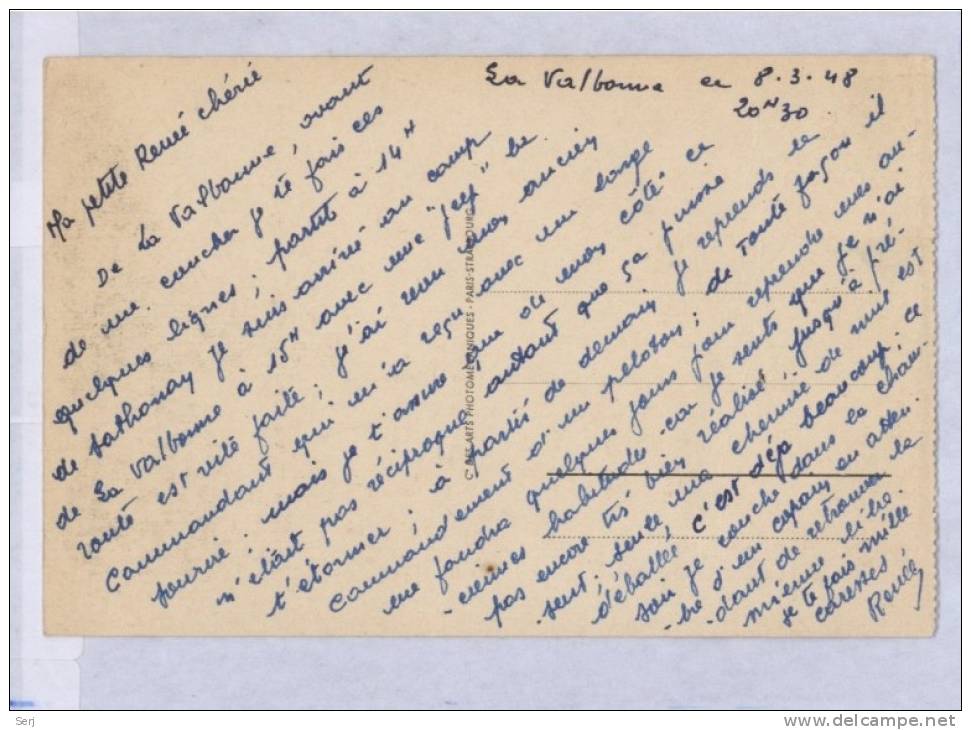 La Valbonne le 8.3.48
20H30
Ma petite Renée chérie
De La Valbonne, avant
de me coucher je te fais ces
quelques lignes; partit à 14H
de Sathonay je suis arrivé au camp
de La Valbonne à 15H avec une "jeep" be
route est vite faite; j'ai revu mon ancien
Commandant qui m'a reçu avec un large
sourire; mais je t'assure que de mon côté ce
n'était pas réciproque autant que ça puisse
t'étonner; à partir de demain je reprends le
commandement d'un peloton; de toute façon il
me faudra quelques jours pour reprendre mes an-
-ciennes habitudes car je sents que je n'ai
pas encore très bien réalisé jusqu'à pré-
-sent; seule ma chemise de nuit est
déballée, c'est déjà beaucoup; ce
soir je couche dans la cham-
-bre d'un copain en atten-
-dant de retrouver la
mienne libre.
je te fais mille
caresses
René
Cie DES ARTS PHOTOMECANIQUES - PARIS-STRASBOURG
Serj
www.delcampe.net